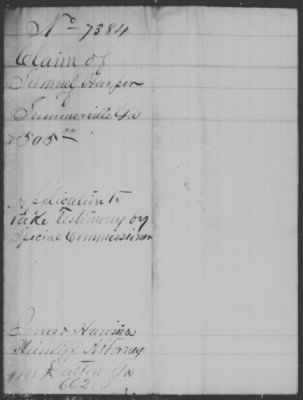 No 7384
Claim of
Samuel Harper
of
Summerville Ga
$505.00
Application to
take testimony by
Special Commissioner
James
Attorney
Dalton Ga
662